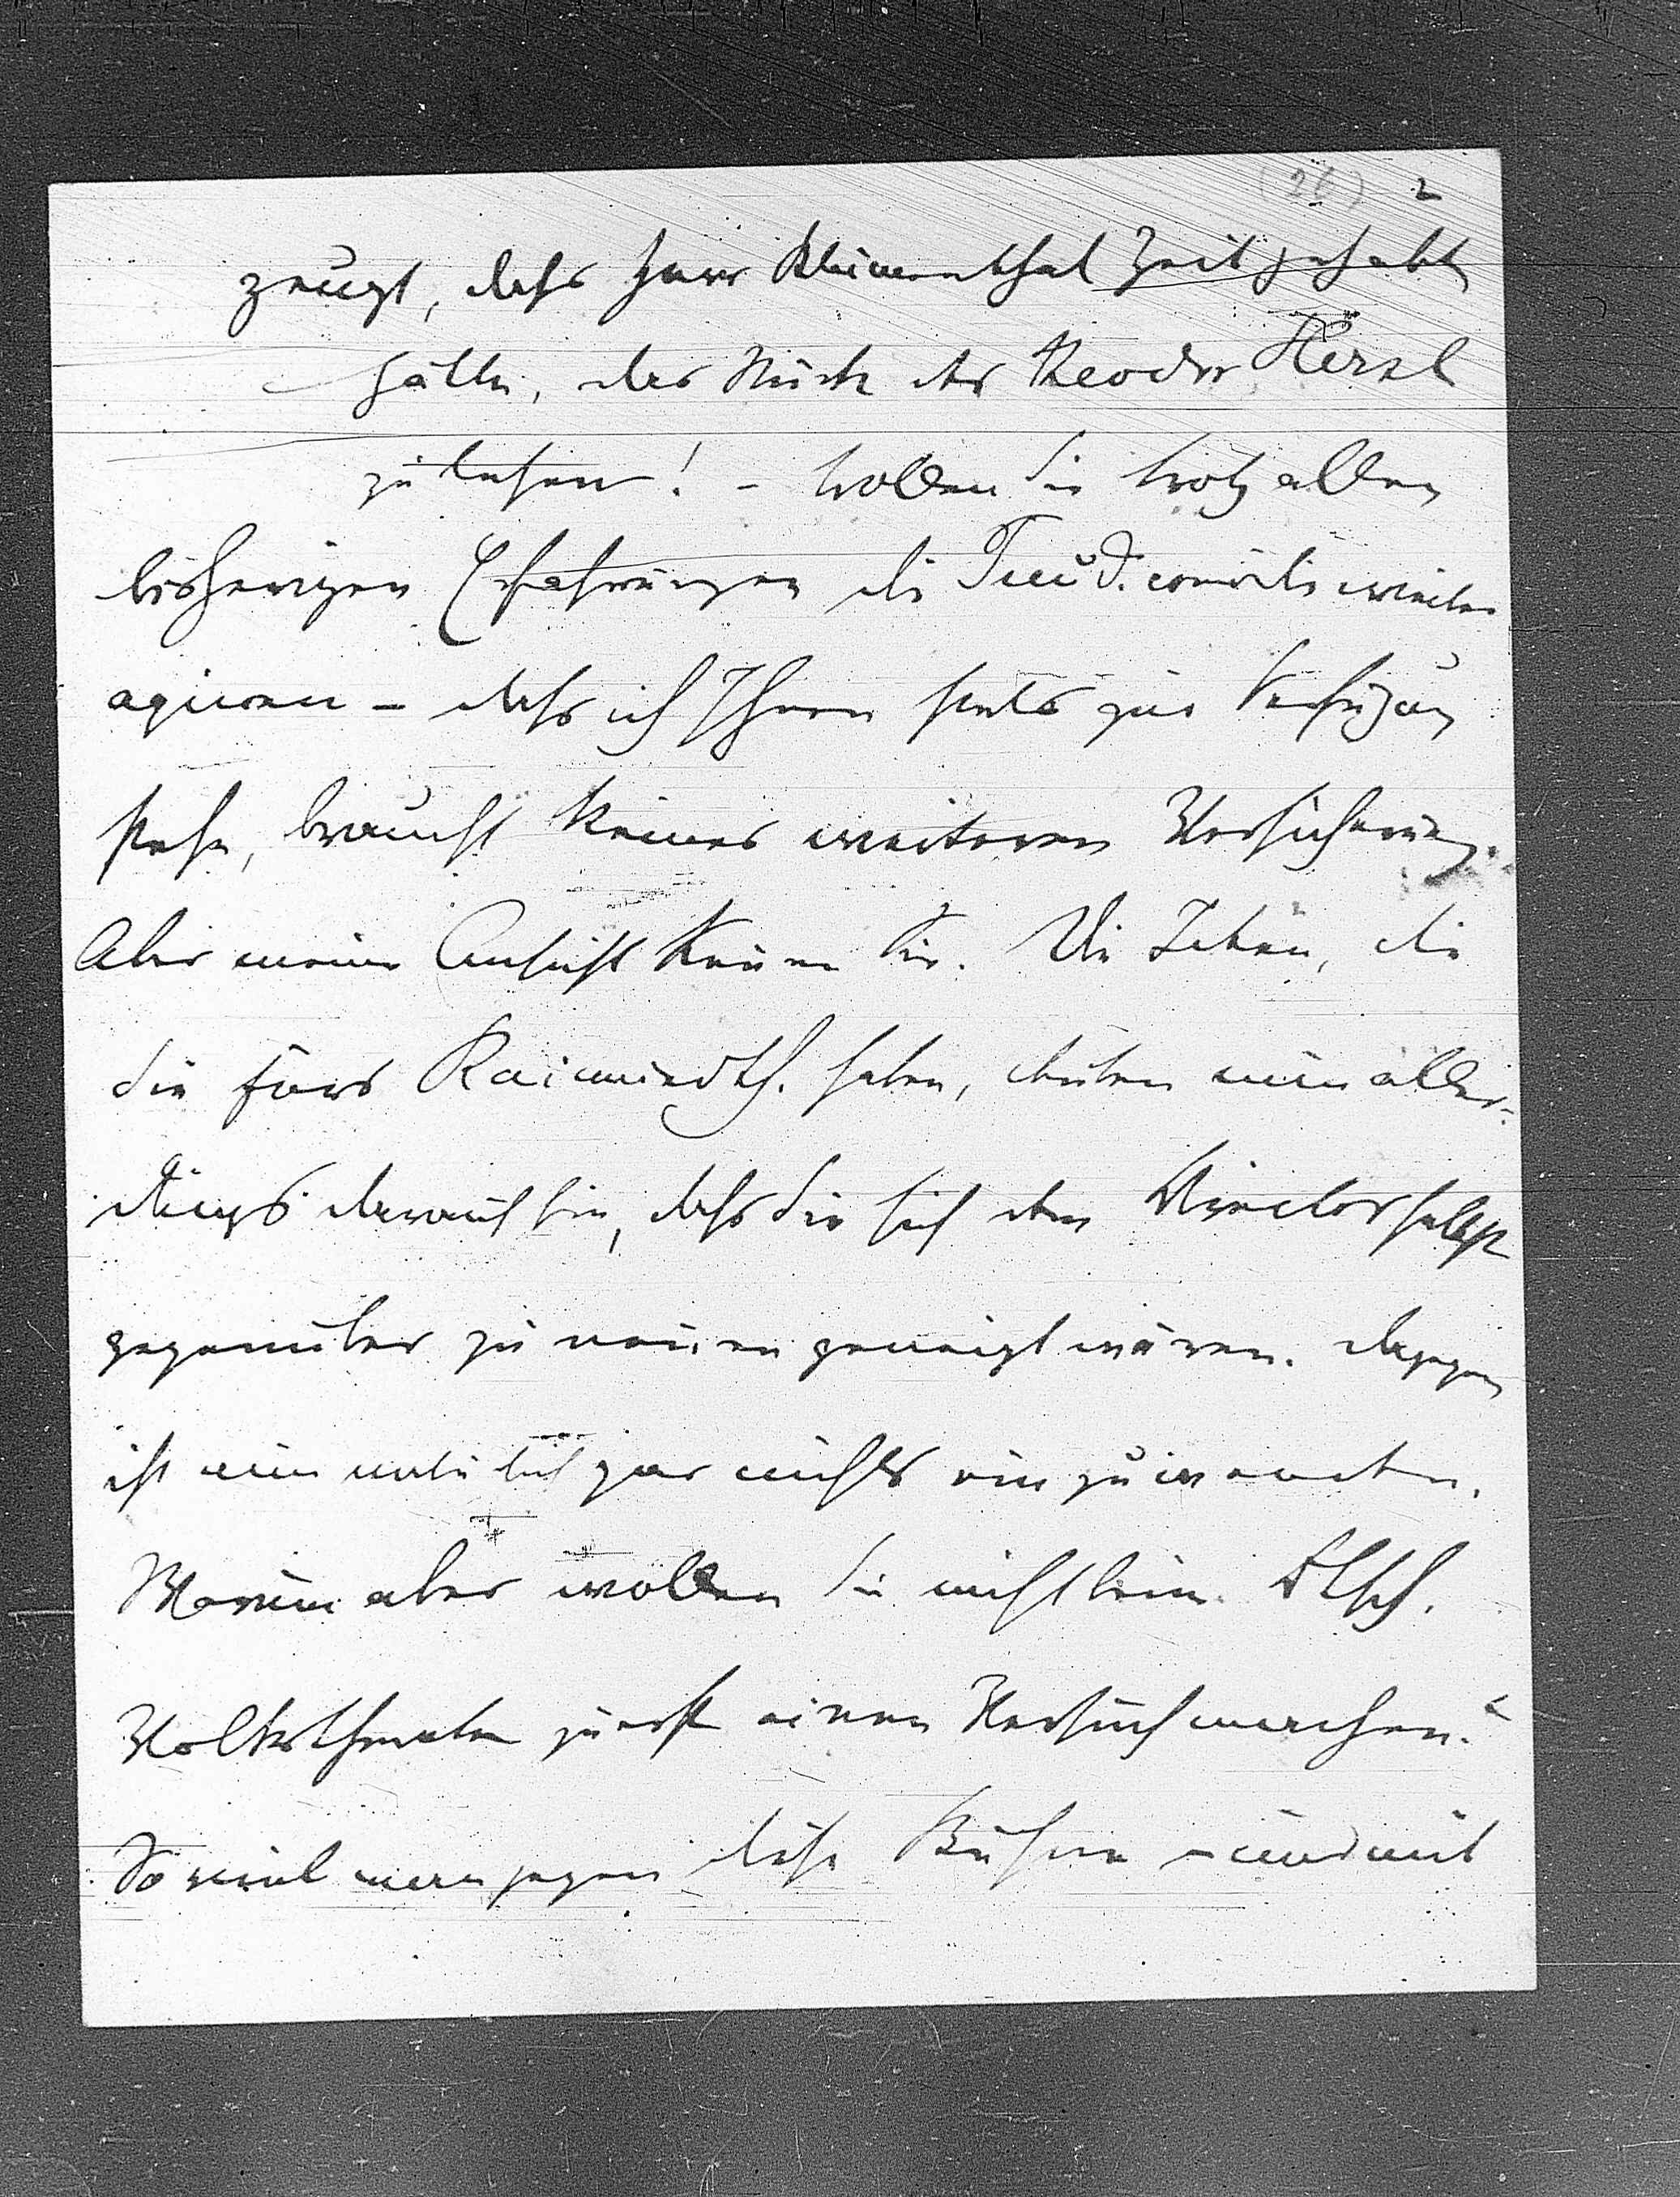 (26) 2
zeugt, daſs Herr Blumenthal Zeit gehabt
hätte, das Stück des Theodor Herzl
zu lesen! – Wollen Sie trotz allen
bisherigen Erfahrungen die Pseud. comödie weiter
agiren – daſs ich Ihnen stets zur Verfügung
stehe, braucht keiner weiteren Versicherung.
Aber meine Ansicht kennen Sie. Die Ideen, die
Sie fürs Raimundth. haben, deuten nun aller-
dings darauf hin, daſs Sie sich dem Director selbst
gegenüber zu nennen geneigt wären. Dagegen
ist nun natürlich gar nichts einzuwenden.
Warum aber wollen Sie nicht beim Dtsch.
Volkstheater zuerst einen Versuch machen?
So viel man gegen diese Bühne – und mit